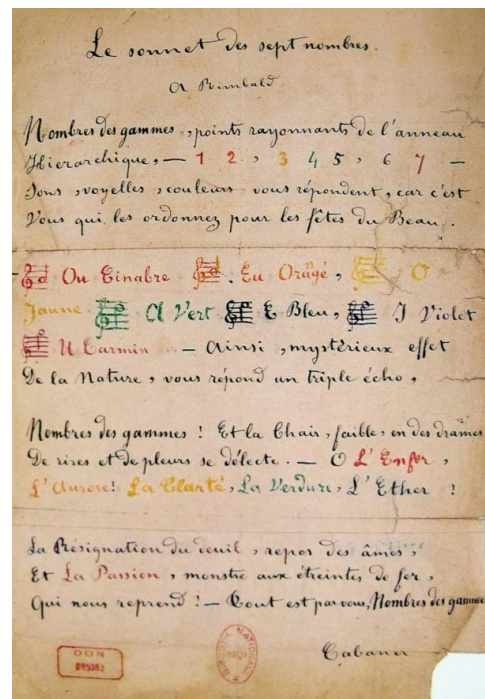 Le sonnet des sept nombres.
A Rimbald
Nombres des gammes, points rayonnants de l'anneau
Hierarchique, — 1 2, 3 4 5, 6 7 —
Sons, voyelles, couleurs vous répondent, car c'est
Vous qui les ordonnez pour les fêtes du Beau.
Ou Cinabre Eu Orangé, O
Jaune A Vert E Bleu, I Violet
U Carmin — Ainsi, mystérieux effet
De la Nature, vous répond un triple écho,
Nombres des gammes ! Et la Chair, faible, en des drames
De rires et de pleurs se délecte. — O L'Enfer,
L'Aurore! La Clarté, La Verdure, L'Ether !
La Résignation du deuil, repos des âmes,
Et La Passion, monstre aux étreintes de fer,
Qui nous reprend ! — Tout est par vous, Nombres des gamme
Cabaner
DON